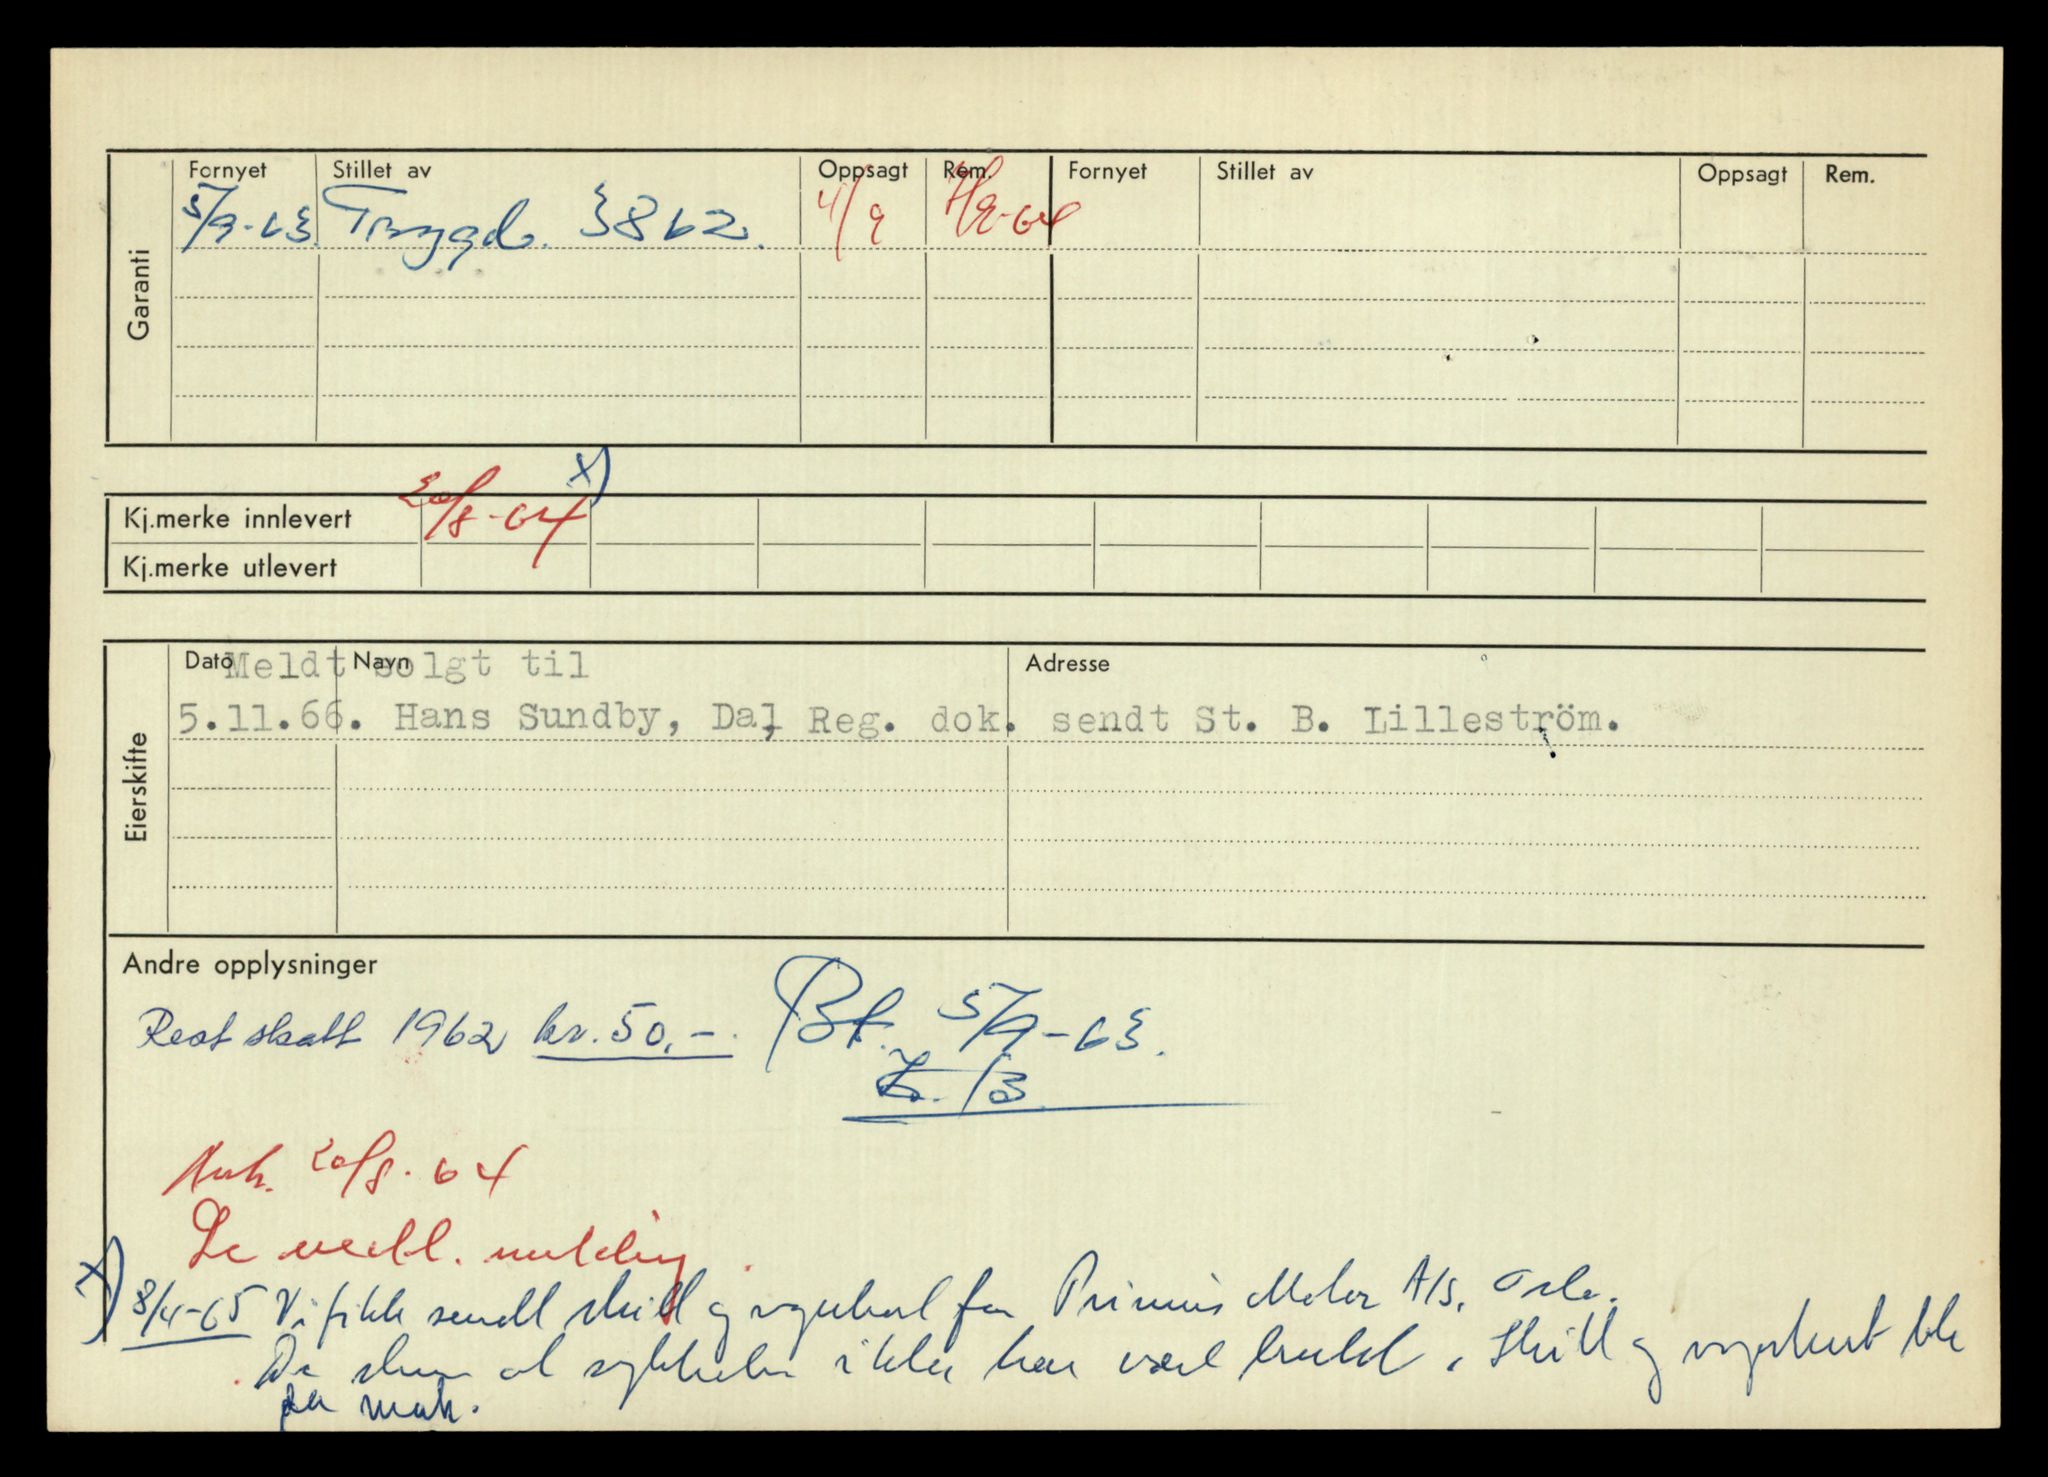 Fornyet Stillet av Oppsagt Rem. Fornyet Stillet av Oppsagt Rem.
5/9-63 Trygd. 3862. 4/9 4/9-64
Garanti
20/8-64 x)
Kj.merke innlevert
Kj.merke utlevert
Dato Navn Adresse
Meldt solgt til
5.11.66. Hans Sundby, Dal, Reg. dok. sendt St. B. Lilleström.
Eierskifte
Andre opplysninger
Rest skatt 1962 kr. 50,-. Bt. 5/9-63.
20/8-64
Se vedl. melding.
x) 8/4-65 Vi fikk sendt skilt og vognkort fra Primus Motor A/S, Oslo.
De skrev at sykkelen ikke har vært brukt. Skilt og vognkort ble